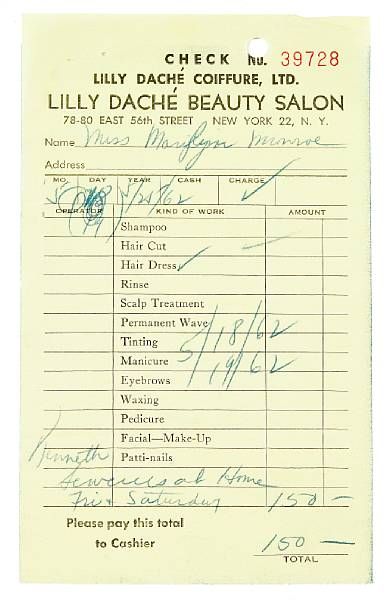 CHECK No. 39728
LILLY DACHÉ COIFFURE, LTD.
LILLY DACHÉ BEAUTY SALON
78-80 EAST 56th STREET NEW YORK 22, N. Y.
Name Miss Marilyn Monroe
Address
MO. DAY YEAR CASH CHARGE
5/21/62 ✓
OPERATOR KIND OF WORK AMOUNT
Shampoo
Hair Cut —
Hair Dress ✓
Rinse
Scalp Treatment
Permanent Wave
Tinting 5/18/62
Manicure 5/19/62
Eyebrows
Waxing
Pedicure
Facial—Make-Up
Kenneth Patti-nails
Services at Home
Fri & Saturday 150 —
Please pay this total
to Cashier 150 —
TOTAL